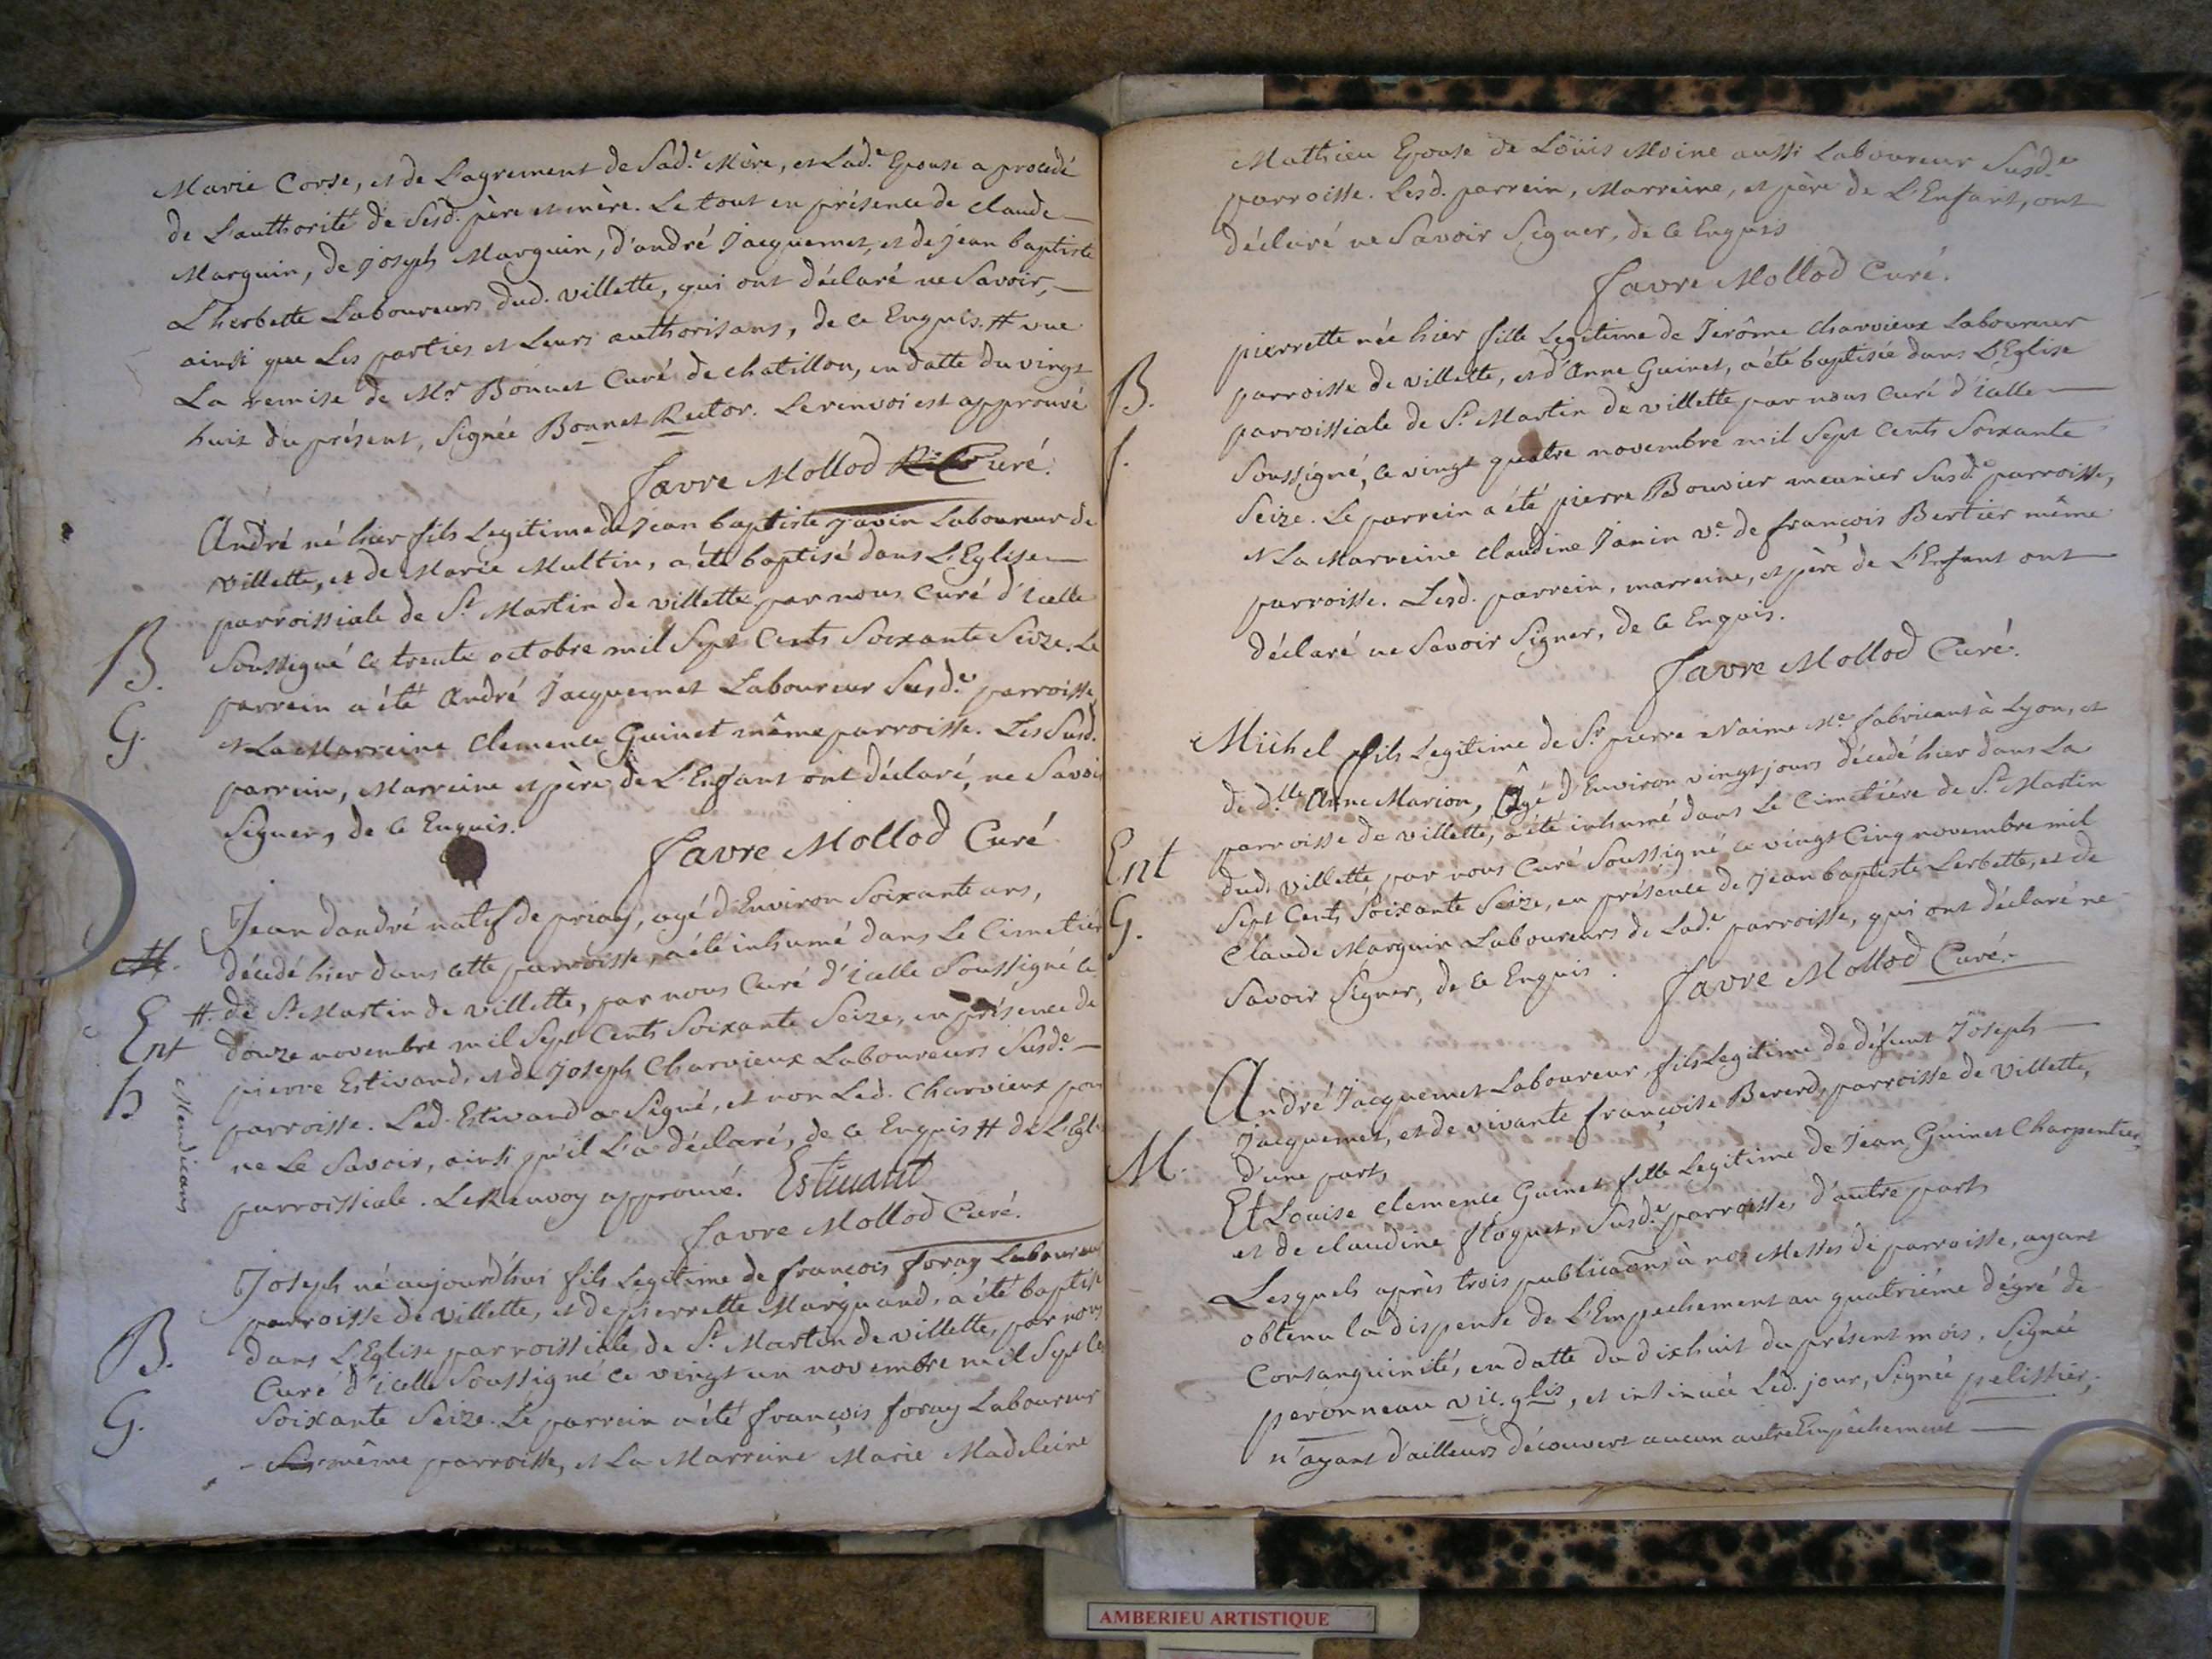 Marie Corse, et de L'agrement de Sad.e Mère, et Lad.e Epouse a procedé
de L'authorité de Sesd. père et mère. Le tout en présence de claude
Marguin, de joseph Marguin, d'andré Jacquemet, et de jean baptiste
L'herbette Laboureurs dud. villette, qui ont déclaré ne Savoir,
ainsi que Les parties et Leurs authorisans, de ce Enquis. # vue
La remise de Mr Bonnet Curé de chatillon, en datte du vingt
huit du présent, Signée Bonnet Rector. Le renvoi est approuvé
favre Mollod Curé.
André né hier fils Legitime de Jean baptiste janin Laboureur de
villette, et de Marie Multin, a été baptisé dans L'Eglise
parroissiale de St Martin de villette par nous Curé d'icelle
B. Soussigné ce trente octobre mil Sept Cents Soixante Seize. Le
parrein a été André Jacquemet Laboureur Susd.e parroisse
G. et La Marreine Clemence Guinet même parroisse. Les Susd.
parrein, Marreine et père de L'Enfant ont déclaré, ne Savoir
Signer, de ce Enquis.
favre Mollod Curé
Jean dandré natif de priay, agé d'Environ Soixante ans,
décédé hier dans cette parroisse, a été inhumé dans Le Cimetièr
Ent #. de St Martin de villette, par nous Curé d'icelle Soussigné ce
douze novembre mil Sept Cents Soixante Seize, en présence de
h pierre Estivand, et de Joseph Charvieux Laboureurs Susd.e
Mendians
parroisse. Led. Estivand a Signé, et non Led. Charvieux pour
ne Le Savoir, ainsi qu'il L'a déclaré, de ce Enquis # de L'Egl.
parroissiale. Le Renvoy approuvé. Estivant
favre Mollod Curé.
Joseph né aujourd'hui fils Legitime de françois foray Laboureur
parroisse de villette, et de pierrette Marguand, a été baptisé
B. dans L'Eglise parroissiale de St Martin de villette, par nous
Curé d'icelle Soussigné ce vingt un novembre mil Sept ce
G. Soixante Seize. Le parrein a été françois foray Laboureur
même parroisse, et La Marreine Marie Madeleine
Mathieu Epouse de Loüis Moine aussi Laboureur Susd.e
parroisse. Lesd. parrein, Marreine, et père de L'Enfant, ont
déclaré ne Savoir Signer, de ce Enquis
favre Mollod Curé.
pierrette née hier fille Legitime de Jerôme Charvieux Laboureur
B. parroisse de villette, et d'Anne Guinet, a été baptisée dans L'Eglise
parroissiale de St Martin de villette par nous Curé d'icelle
f. Soussigné, ce vingt quatre novembre mil Sept Cents Soixante
Seize. Le parrein a été pierre Bouvier meunier Susd.e parroisse,
et La Marreine Claudine Janin ve. de françois Bertier même
parroisse. Lesd. parrein, marreine, et père de L'Enfant ont
déclaré ne Savoir Signer, de ce Enquis.
favre Mollod Curé.
Michel fils Legitime de Sr pierre Naime Me fabricant à Lyon, et
de dlle Anne Marion, Agé d'Environ vingt jours décédé hier dans La
Ent parroisse de villette, a été inhumé dans Le Cimetiére de St Martin
dud. villette par nous Curé Soussigné ce vingt Cinq novembre mil
G. Sept Cents Soixante Seize, en présence de Jean baptiste Lerbette, et de
Claude Marguin Laboureurs de Lad.e parroisse, qui ont déclaré ne
Savoir Signer, de ce Enquis.
favre Mollod Curé.
André Jacquemet Laboureur fils Legitime de défunt Joseph
Jacquemet, et de vivante françoise Bererd, parroisse de villette,
M. d'une part,
Et Louise Clemence Guinet fille Legitime de Jean Guinet Charpentier,
et de claudine floquet, Susd.e parroisse, d'autre part,
Lesquels après trois publicaõns à nos Messes de parroisse, ayant
obtenu la dispense de L'Empechement au quatriéme dégré de
Consanguinité, en datte du dixhuit du présent mois, Signée
peronneau vic. glis, et insinuée Led. jour, Signée pelissier;
n'ayant d'ailleurs découvert aucun autre Empêchement
AMBERIEU ARTISTIQUE